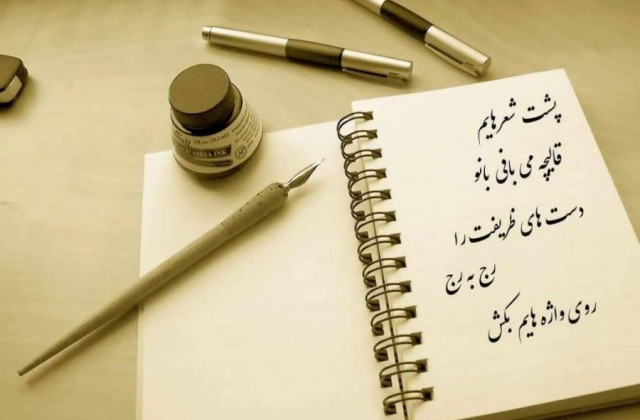 INDIA INK
پشت شعرهایم
قالیچه می بافی بانو
دست های ظریفت را
رج به رج
روی واژه هایم بکش